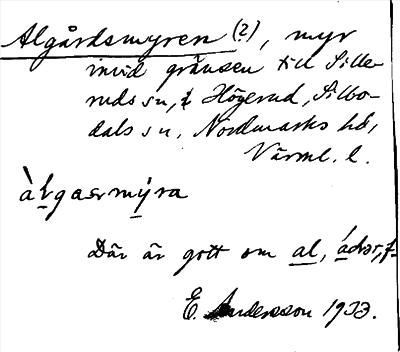 Algårdsmyren (?), myr
invid gränsen till Sille-
ruds sn, i Högerud, Silbo-
dals sn, Nordmarks hd,
Värml. l.
àlgasrmýra
Där är gott om al, ádər, f.
E. Andersson 1933.